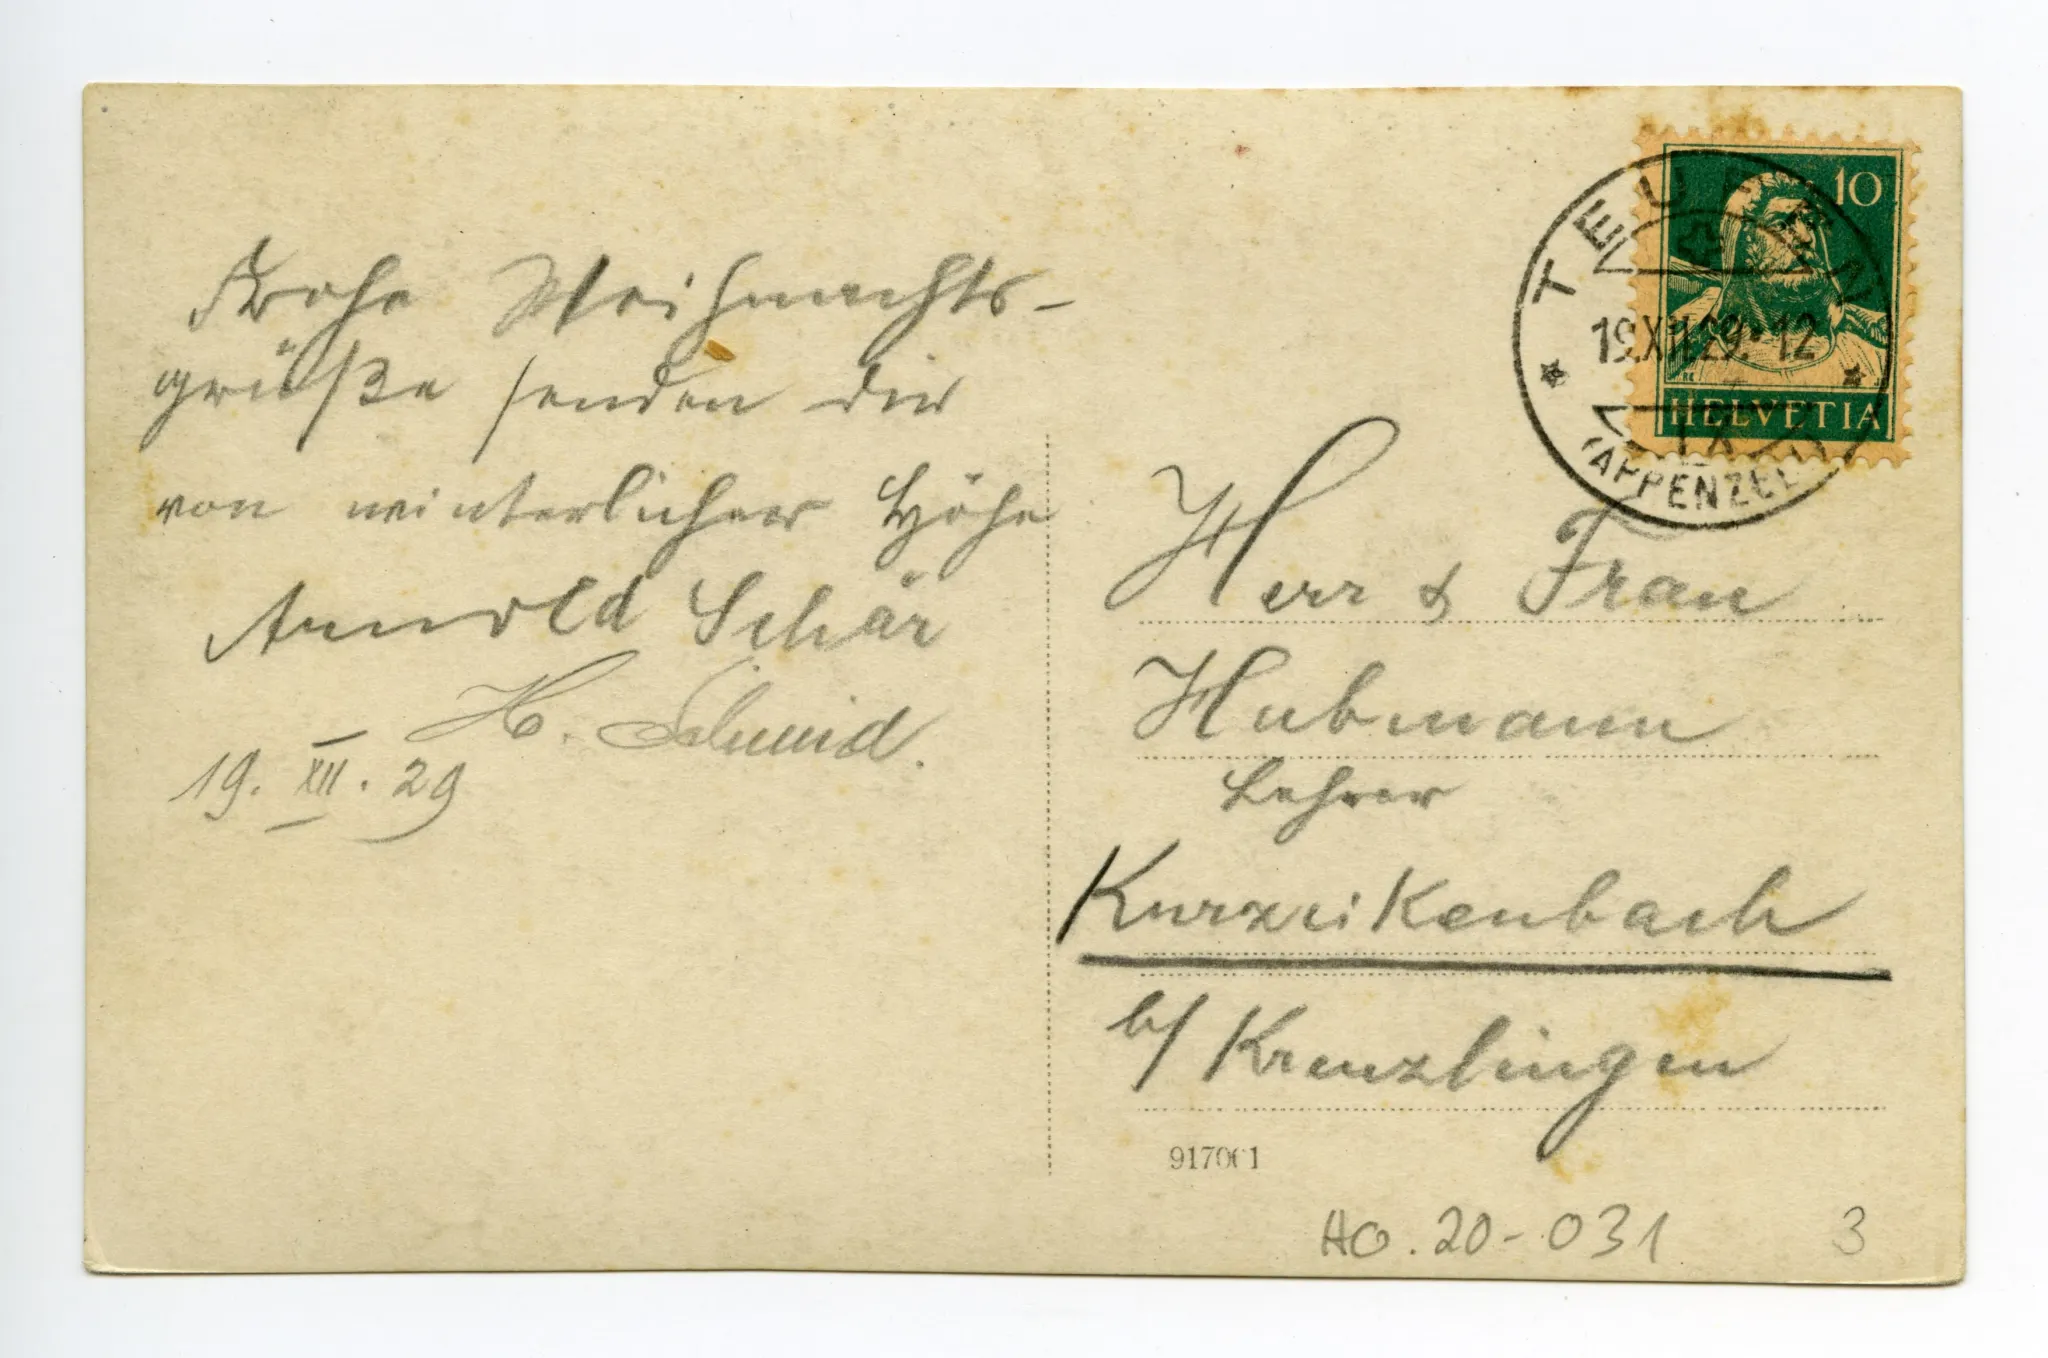 Frohe Weihnachts-
grüße senden dir
von winterlicher Höhe
Arnold Schär
H. Schmid.
19. XII. 29
10
HELVETIA
TEUFEN
19.XII.29.-12
IX
(APPENZELL)
Herr & Frau
Hubmann
Lehrer
Kurzrikenbach
b/ Kreuzlingen
917061
HO.20-031
3